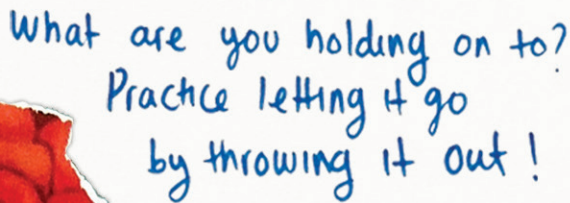 What are you holding on to?
Practice letting it go
by throwing it out!